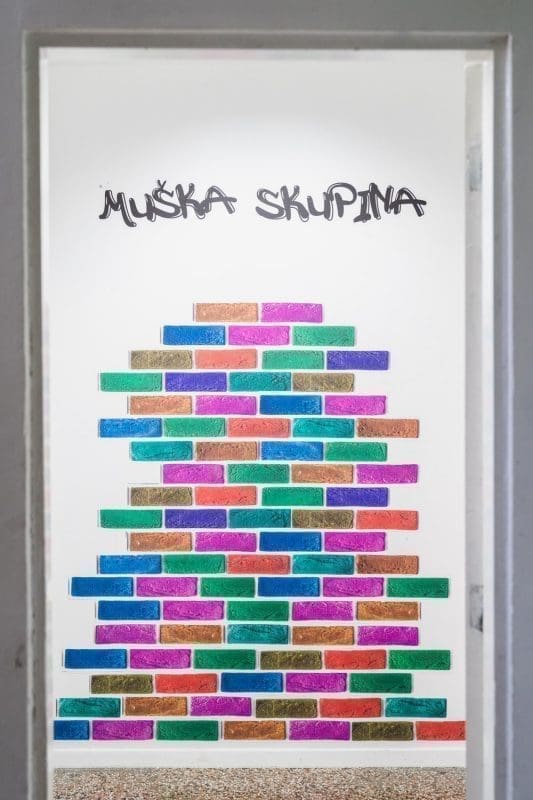 MUŠKA SKUPINA